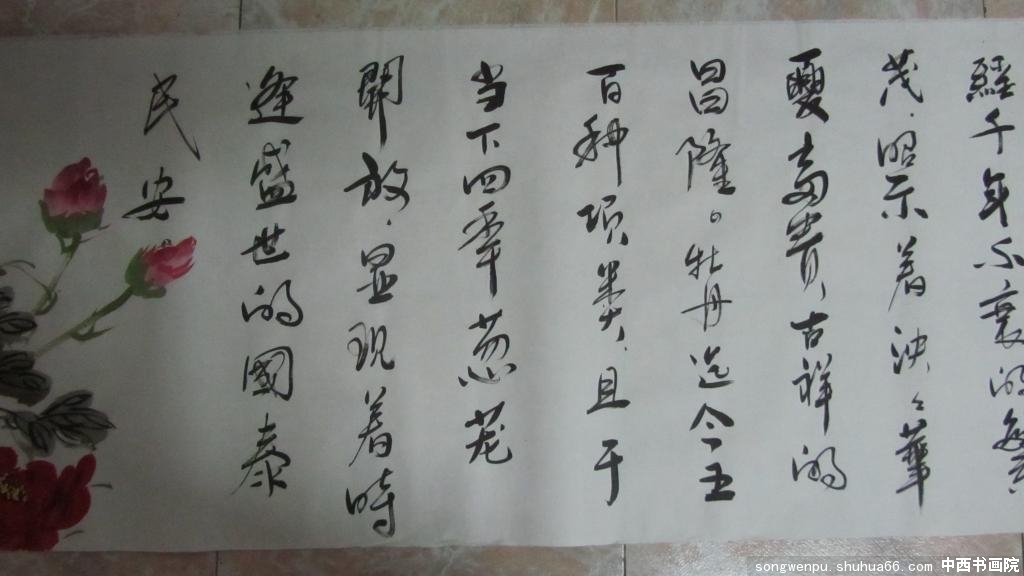 經千年不衰的繁
茂，昭示着泱々華
夏富贵吉祥的
昌隆。牡丹迄今五
百种项类，且于
当下四季葱茏
開放，显现着時
逢盛世的國泰
民安。
songwenpu.shuhua66.com 中西书画院